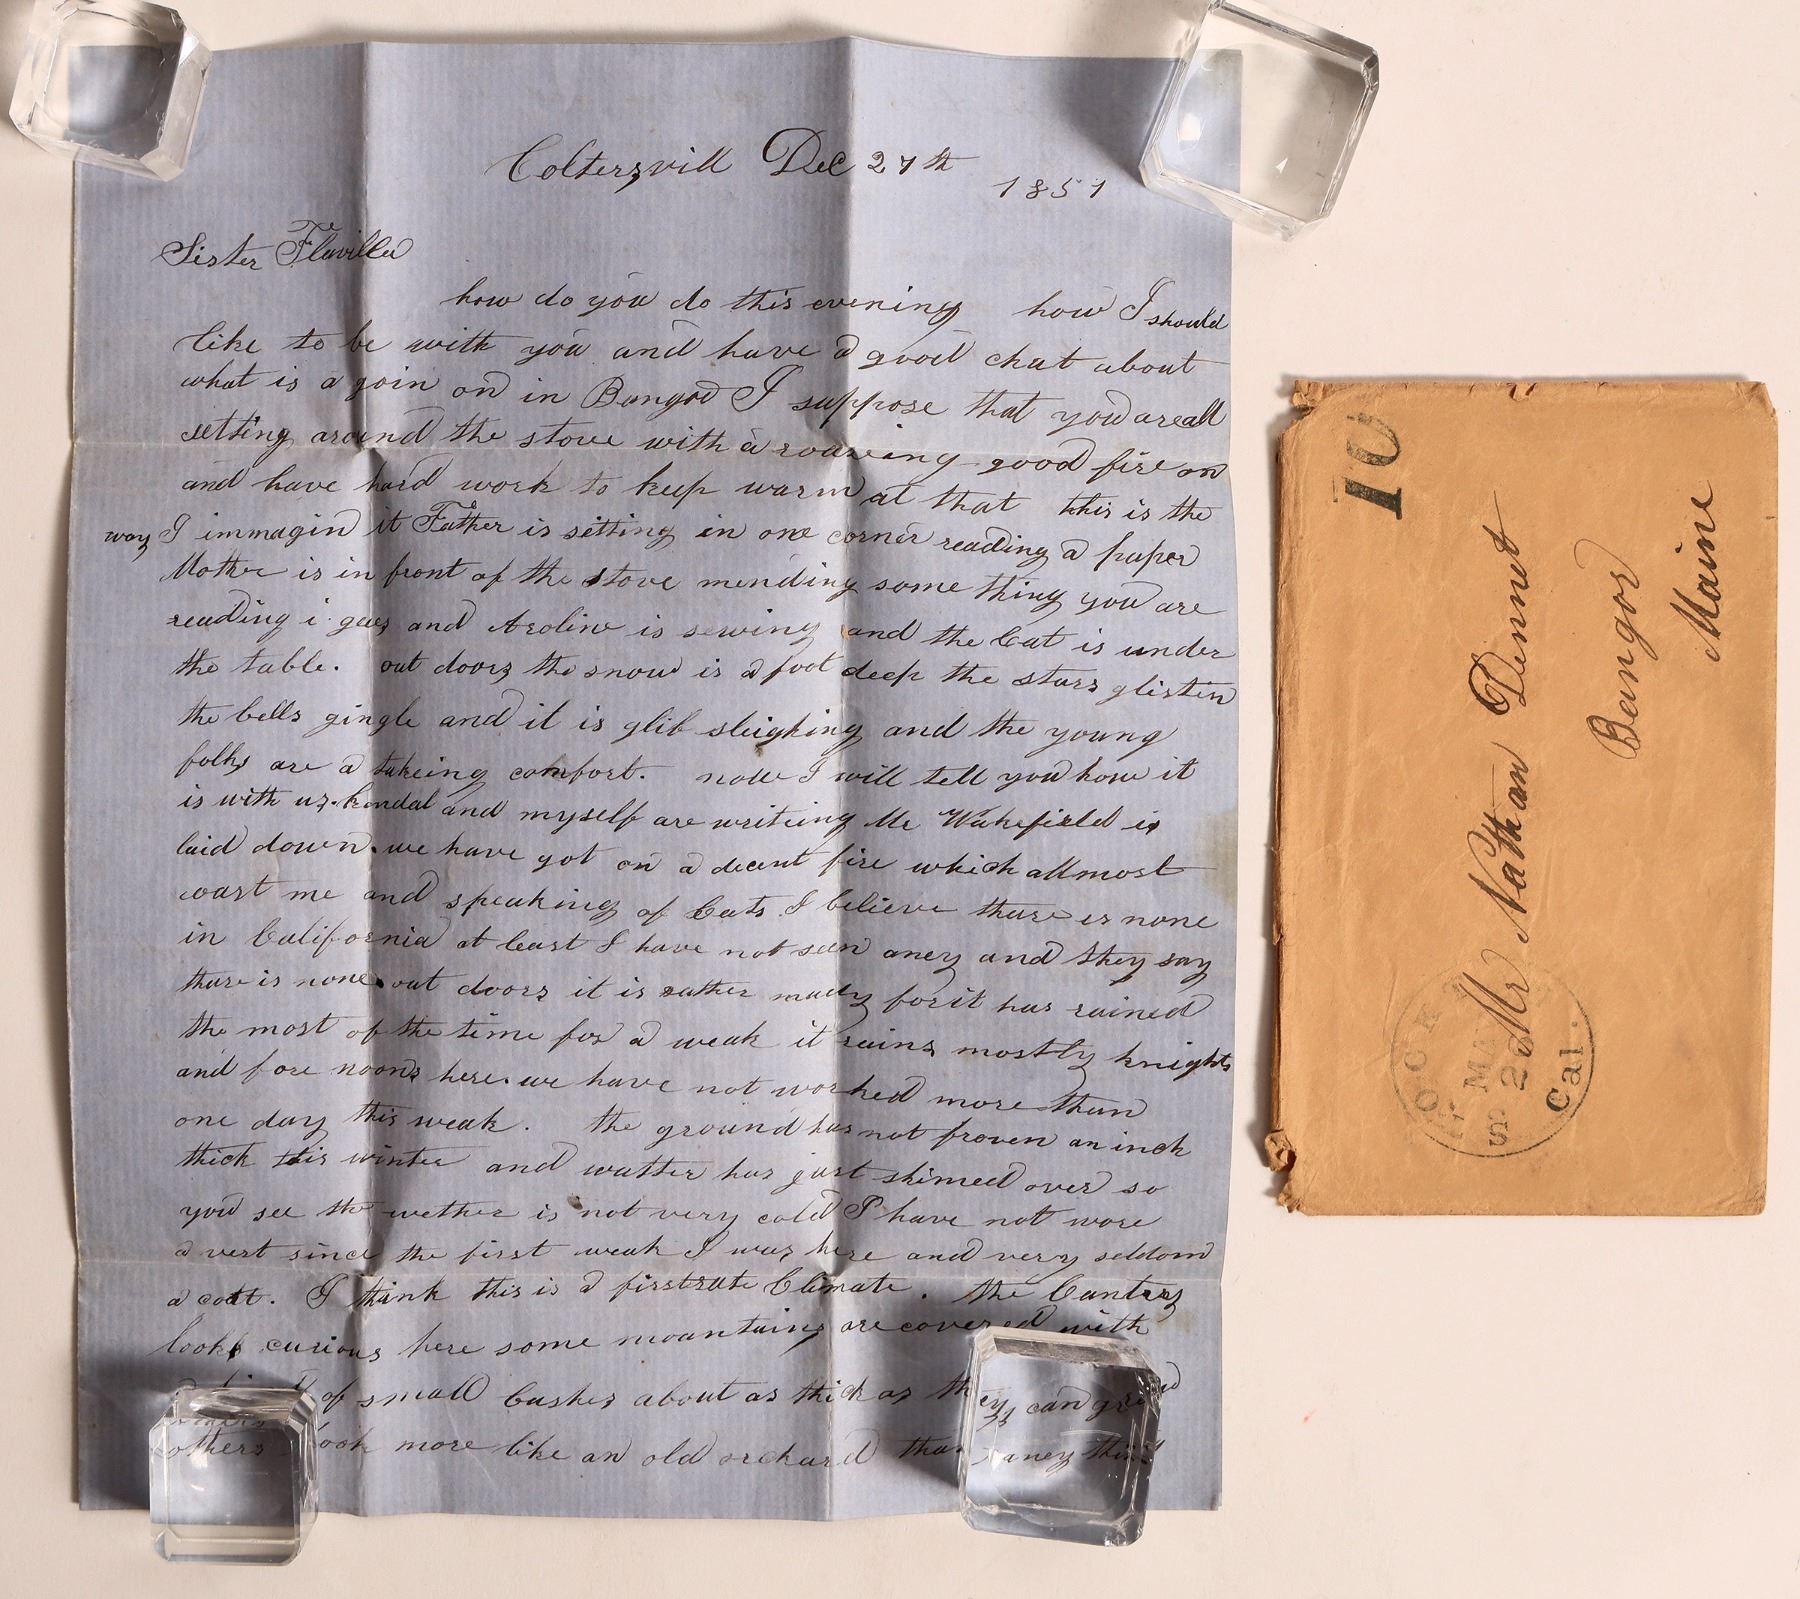 Coltersvill Dec 27th
1851
Sister Flavilla
how do you do this evening how I should
like to be with you and have a good chat about
what is a goin on in Bangor I suppose that you are all
setting around the stove with a roareing good fire on
and have hard work to keep warm at that this is the
way I immagin it Father is setting in one corner reading a paper
Mother is in front of the stove mending some thing you are
reading i gues and Aroline is sewing and the Cat is under
the table. out doors the snow is a foot deep the stars glistin
the bells gingle and it is glib sleighing and the young
folks are a takeing comfort. now I will tell you how it
is with us. kendal and myself are writeing Mr Wakefield is
laid down. we have got on a decent fire which allmost
wast me and speaking of Cats I believe thare is none
in California at least I have not seen aney and they say
thare is none. out doors it is rather mudy for it has rained
the most of the time for a weak it rains mostly knights
and fore noons here. we have not worked more than
one day this weak. the ground has not froven an inch
thick this winter and watter has just skimed over so
you see the wether is not very cold I have not wore
a vest since the first weak I was here and very seldom
a coat. I think this is a firstrate Climate. the Cantry
looks curious here some mountains are covered with
of small bushes about as thick as they can grow
others look more like an old orchard than aney thing
10
Mr Nathan Dennet
Bangor
Maine
STOCKTON
MAR
2
Cal.